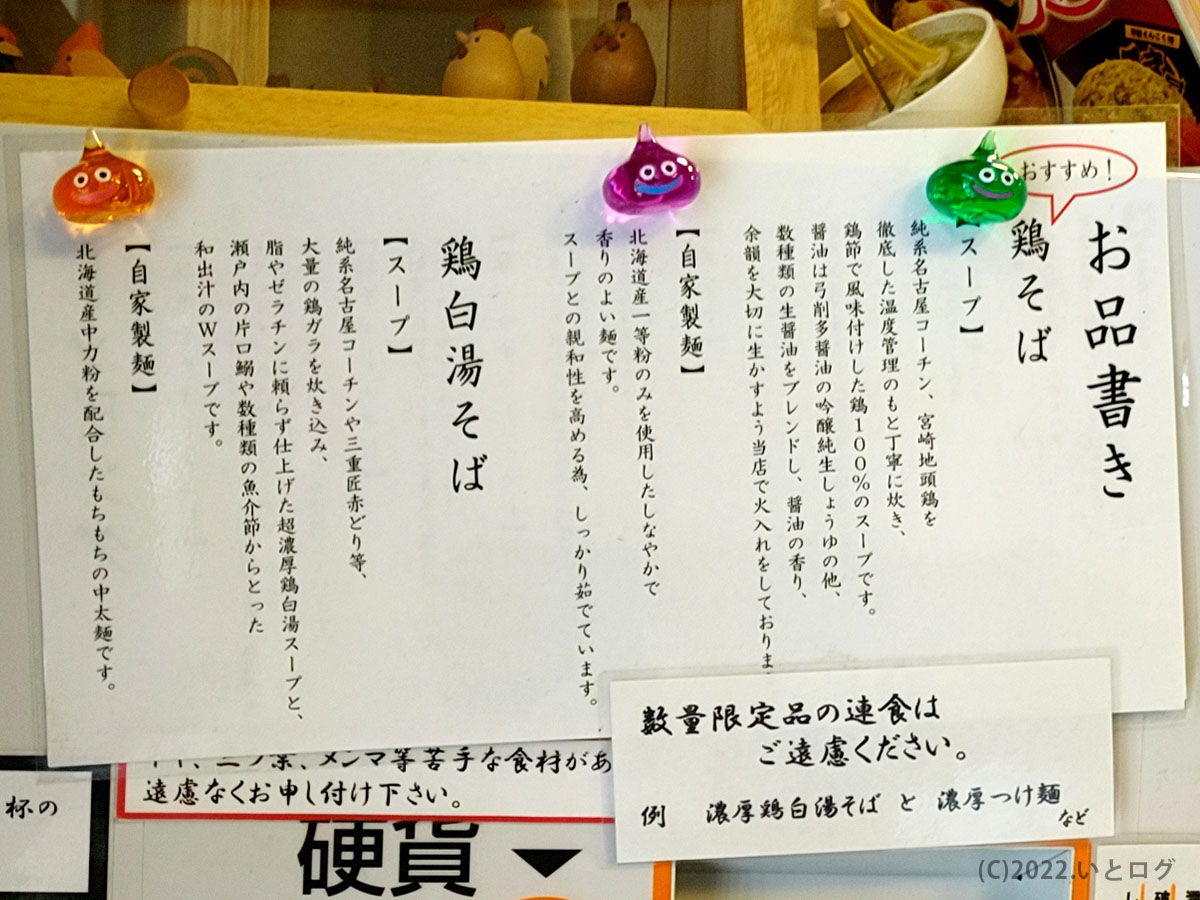 おすすめ!
お品書き
鶏そば
【スープ】
純系名古屋コーチン、宮崎地頭鶏を
徹底した温度管理のもと丁寧に炊き、
鶏節で風味付けした鶏100%のスープです。
醤油は弓削多醤油の吟醸純生しょうゆの他、
数種類の生醤油をブレンドし、醤油の香り、
余韻を大切に生かすよう当店で火入れをしておりま
【自家製麺】
北海道産一等粉のみを使用したしなやかで
香りのよい麺です。
スープとの親和性を高める為、しっかり茹でています。
鶏白湯そば
【スープ】
純系名古屋コーチンや三重匠赤どり等、
大量の鶏ガラを炊き込み、
脂やゼラチンに頼らず仕上げた超濃厚鶏白湯スープと、
瀬戸内の片口鰯や数種類の魚介節からとった
和出汁のWスープです。
【自家製麺】
北海道産中力粉を配合したもちもちの中太麺です。
数量限定品の連食は
ご遠慮ください。
例 濃厚鶏白湯そば と 濃厚つけ麺
など
、メンマ等苦手な食材があ
遠慮なくお申し付け下さい。
杯の
硬貨▼
(C)2022.いとログ